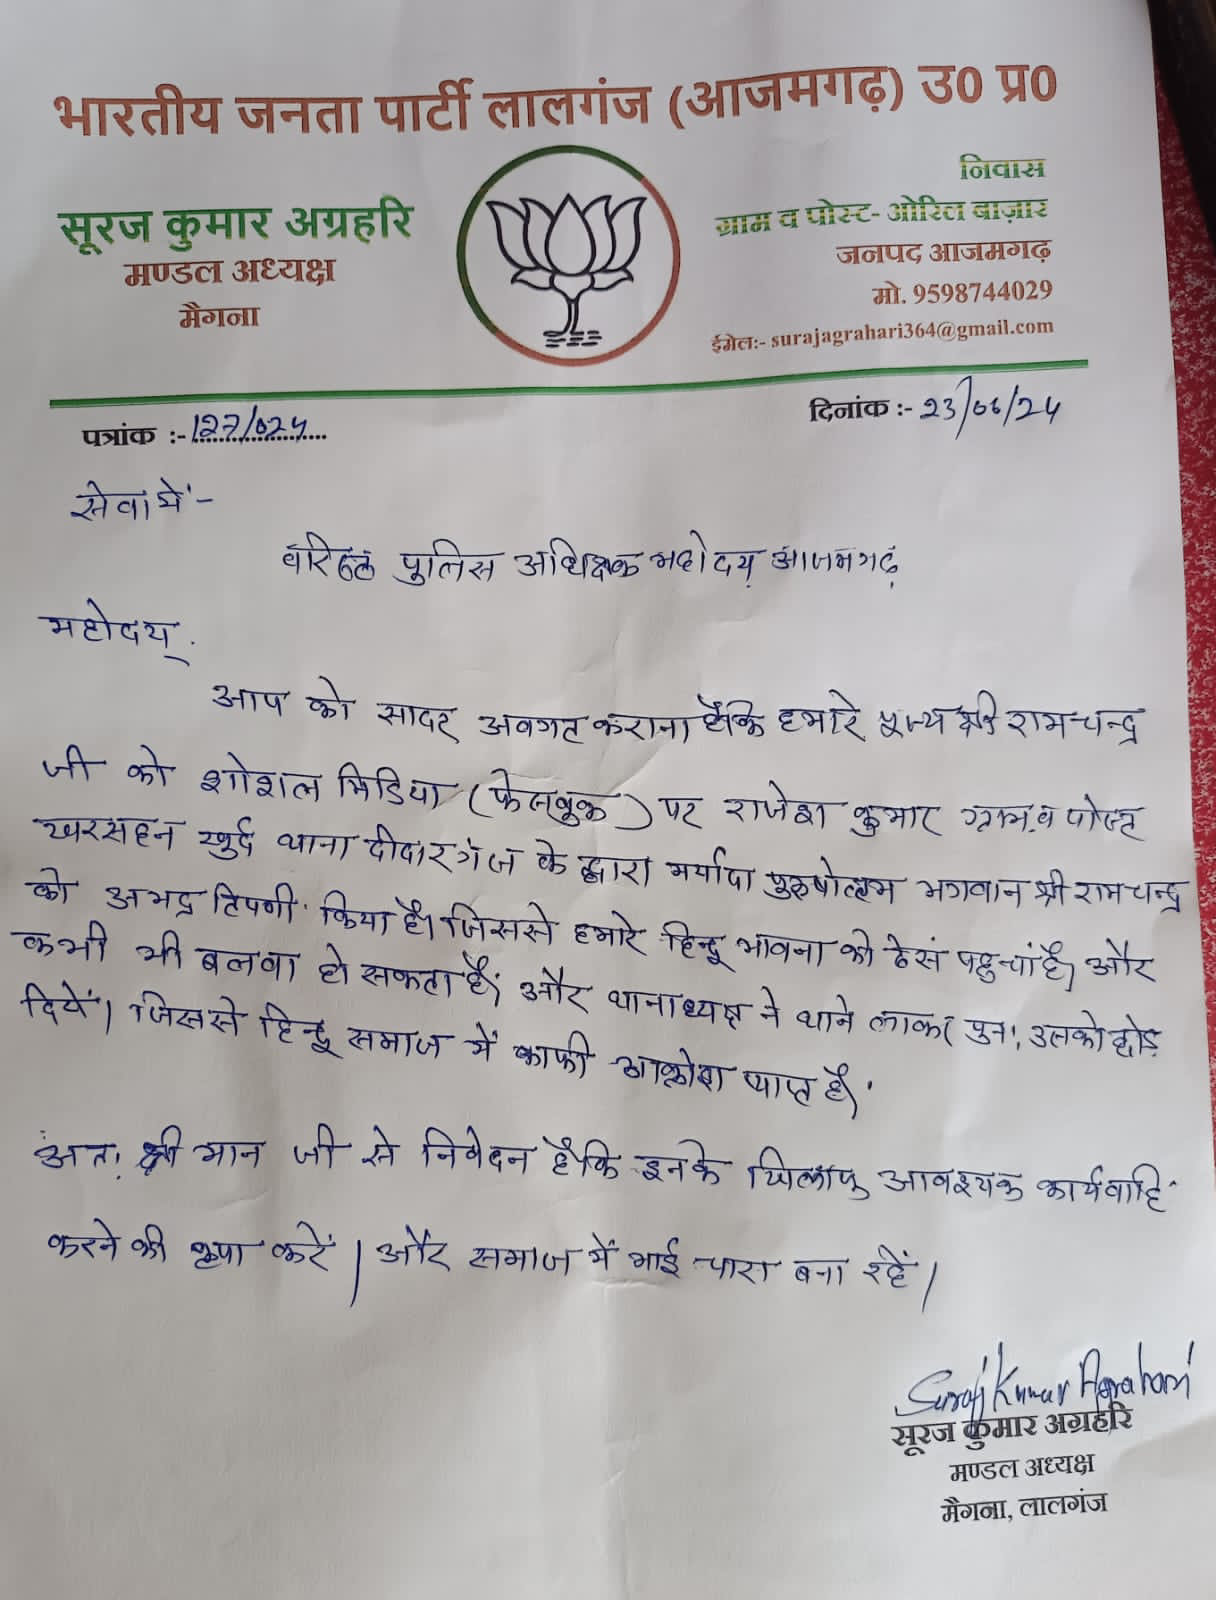 भारतीय जनता पार्टी लालगंज (आजमगढ़) उ0 प्र0
सूरज कुमार अग्रहरि
मण्डल अध्यक्ष
मैगना
निवास
ग्राम व पोस्ट- ओरिल बाज़ार
जनपद आजमगढ़
मो. 9598744029
ईमेल:- surajagrahari364@gmail.com
पत्रांक :- 127/024
दिनांक :- 23/06/24
सेवा में -
वरिष्ठ पुलिस अधिक्षक महोदय आजमगढ़
महोदय,
आप को सादर अवगत कराना है कि हमारे पूज्य श्री राम चन्द्र
जी को शोशल मिडिया (फेसबुक) पर राजेश कुमार ग्राम व पोस्ट
खरसहन खुर्द थाना दीदारगंज के द्वारा मर्यादा पुरुषोत्तम भगवान श्री राम चन्द्र
को अभद्र टिपणी किया है। जिससे हमारे हिन्दू भावना को ठेसं पहुचां है। और
कभी भी बलवा हो सकता है। और थानाध्यक्ष ने थाने लाकर पुनः उसको छोड़
दिये। जिससे हिन्दू समाज में काफी आक्रोश व्याप्त है।
अतः श्री मान जी से निवेदन है कि इनके खिलाफ आवश्यक कार्यवाहि
करने की कृपा करें। और समाज में भाई चारा बना रहें।
Suraj Kumar Agrahari
सूरज कुमार अग्रहरि
मण्डल अध्यक्ष
मैगना, लालगंज